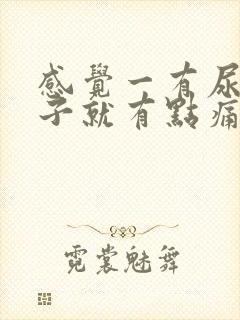 感覺一有尿
子就有點痛
霓裳魅舞